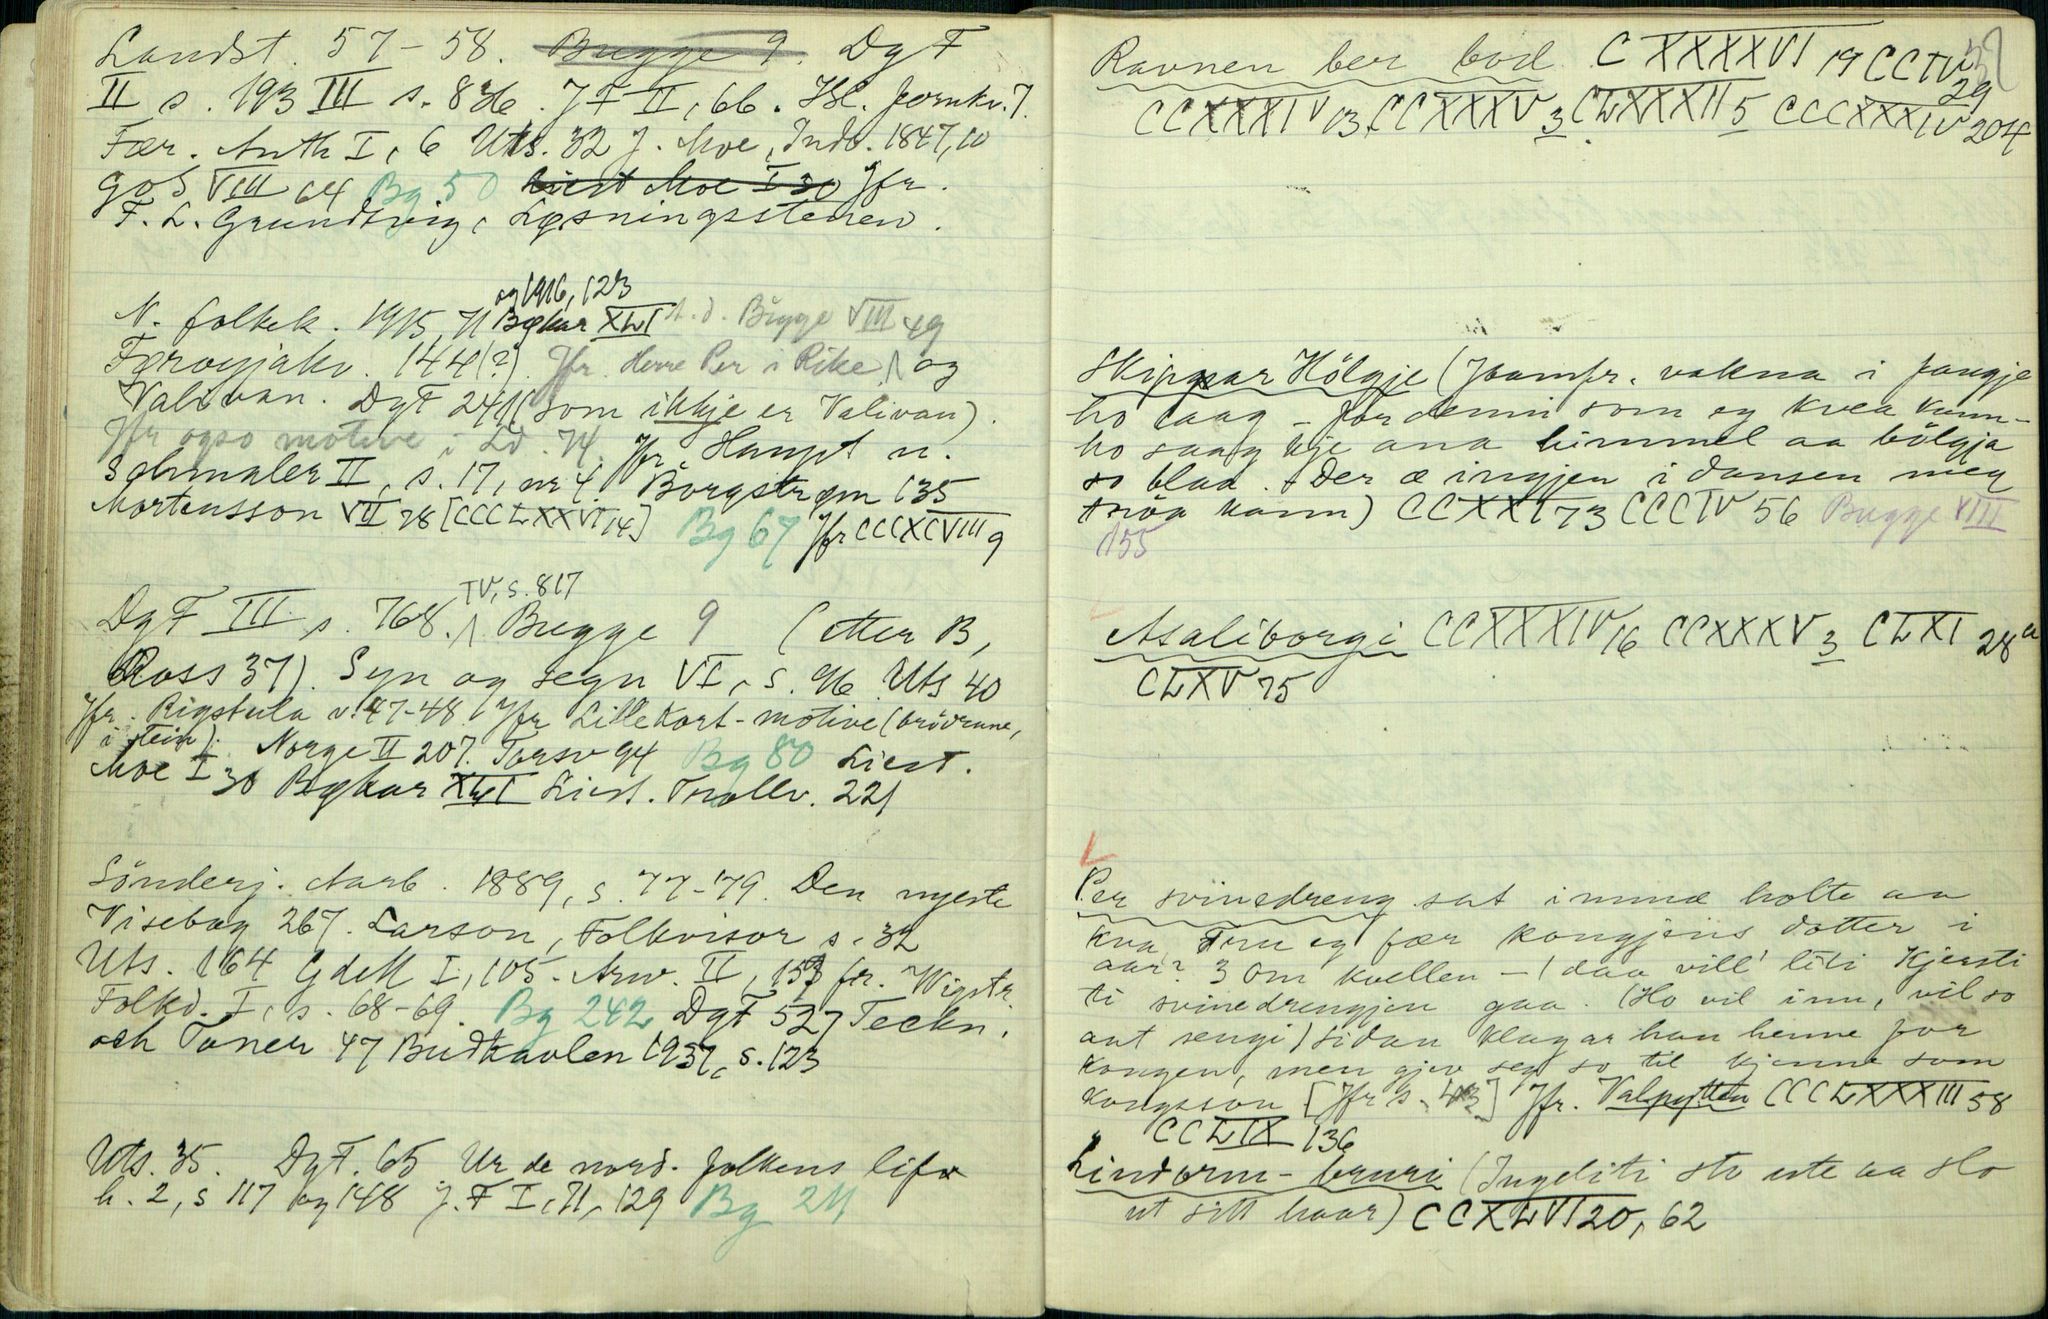 Landst. 57-58. Bugge 9. DgF
II s. 193 III s. 836. JF II, 66. Isl. fornkv. 7.
Fær. Anth I, 6 Uts. 32 J. Moe, Indb. 1847, 10
GoS VIII 64 Bg 50 Liest Moe I 30 Jfr.
F. L. Grundtvig, Løsningsstenen.
og 1916, 123
N. folkek. 1915, 71 Bøkar XLI A. d. Bugge VIII 49
Færoyjakv. 144(?) Jfr. Herre Per i Rike, og
Valivan. DgF 241 (som ikkje er Valivan).
Jfr ogso motive i Ld. 74. Jfr Haupt u.
Schmaler II, s. 17, nr 4. Borgstrøm 135
Mortensson VII 28 [CCCLXXVI 14] Bg 67 Jfr CCCXCVIII 9
IV, s. 817
DgF III s. 768. Bugge 9 (etter B,
Ross 37). Syn og segn VI, s. 96 Uts 40
Jfr. Rigstula v. 47-48. Jfr Lillekort-motive (brödrane,
i stein). Norge II 207. Torsv 94 Bg 80 Liest.
Moe I 30 Bøkar XLI Liest. Trollv. 221
Sönderj. Aarb. 1889, s. 77-79. Den nyeste
Visebog 267. Larson, Folkvisor s. 32
Uts. 164 GdM I, 105. Arw. II, 157 fr. Wigstr.
Folkd. I, s. 68-69. Bg 242 DgF 527 Teckn.
och Toner 47 Budkavlen 1937, s. 123
Uts. 35. DgF. 65 Ur de nord. folkens lif
h. 2, s 117 og 148 J. F I, 71, 129 Bg 24
Ravnen ber bod CXXXXVI 19 CCIV 29
CCXXXIV 13. CCXXXV 3 CLXXXII 5 CCCXXXIV 204
Skippar Hölgje (Jomfr. vakna i fangje
ho laag - for denni som eg kvea kunn-
ho saag kje ana himmel aa bölgja
so blaa. Der æ ingjen i dansen meg
tröa kann) CCXXI 73 CCCIV 56 Bugge VIII
155
Asaliborgi CCXXXIV 16 CCXXXV 3 CLXI 28a
CLXV 75
Per svinedreng sat innmæ holte aa
kva, Tru eg fær kongjens dotter i
aar? 3 om kvellen - (daa vill' liti Kjersti
ti svinedrengjen gaa. (Ho vil inn, vil so
aat sengi) sidan klagar han henne for
kongen, men gjev seg so til kjenne som
kongsson [Jfr s. 43] Jfr. Valpytten CCCLXXXIII 58
CCLIX 136
Lindorm-bruri (Ingeliti sto ute aa slo
ut sitt haar) CCXLVI 20, 62